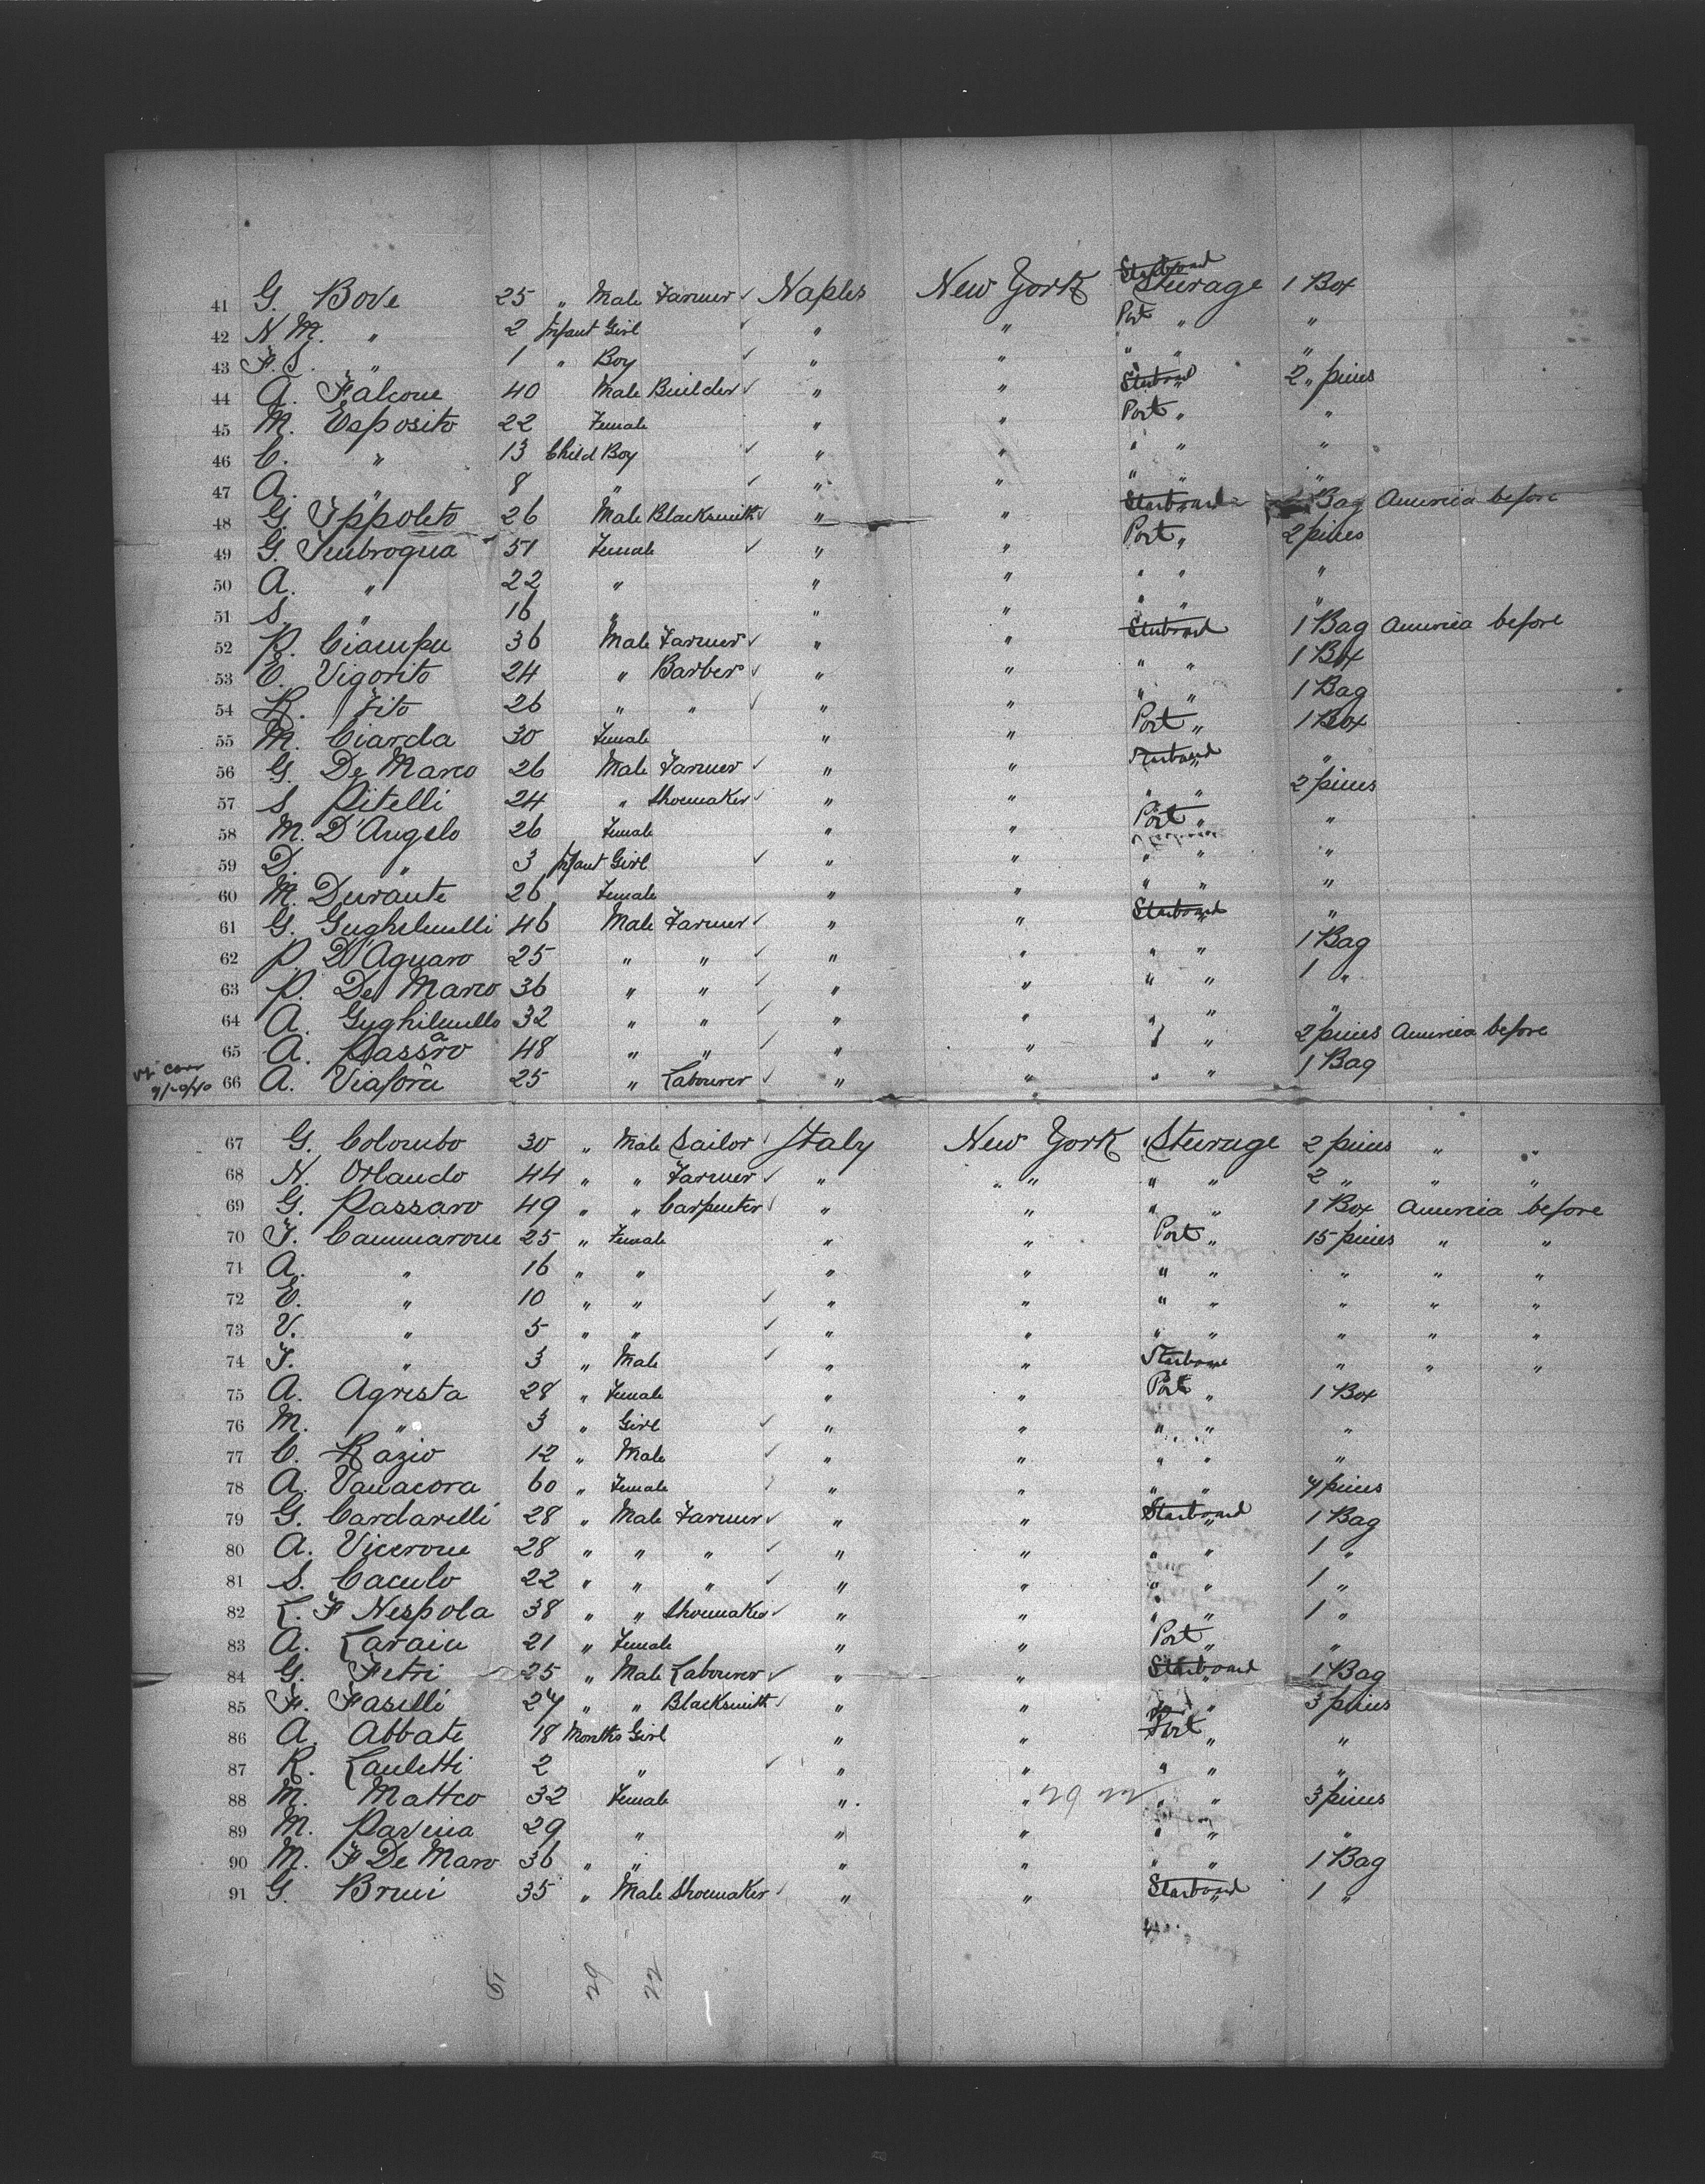 41 G. Bove 25 " Male Farmer ✓ Naples New York Starboard Steerage 1 Box
42 N M. " 2 Infant Girl ✓ " " Port " "
43 F. S. " 1 " Boy ✓ " " " " "
44 A. Falcone 40 Male Builder ✓ " " Starboard " 2 " pieces
45 M. Esposito 22 Female " " Port " "
46 C. " 13 Child Boy ✓ " " " " "
47 A. " 8 " ✓ " " " " "
48 G. Ippoleto 26 Male Blacksmith ✓ " " Starboard " Bag America before
49 G. Imbrogua 51 Female ✓ " " Port " 2 pieces
50 A. " 22 " " " " " "
51 S. " 16 " " " " " "
52 P. Ciampu 36 Male Farmer ✓ " " Starboard 1 Bag America before
53 E. Vigorito 24 " Barber ✓ " " " " 1 Box
54 R. Tito 26 " " ✓ " " " " 1 Bag
55 M. Ciarda 30 Female " " Port " 1 Box
56 G. De Marco 26 Male Farmer ✓ " " Starboard " "
57 S. Pitelli 24 " Shoemaker ✓ " " " " 2 pieces
58 M. D'Angelo 26 Female " " Port " "
59 D. " 3 Infant Girl ✓ " " " " "
60 M. Durante 26 Female " " " " "
61 G. Gughelmelli 46 Male Farmer ✓ " " Starboard " "
62 P. D'Aguaro 25 " " ✓ " " " " 1 Bag
63 P. De Marco 36 " " ✓ " " " " 1 "
64 A. Gughilmello 32 " " ✓ " " " " "
65 A. Passaro 48 " " ✓ " " " " 2 pieces America before
66 A. Viafora 25 " Labourer ✓ " " " " 1 Bag
67 G. Colombo 30 " Male Sailor Italy New York " Steerage 2 pieces " "
68 N. Orlando 44 " " Farmer ✓ " " " " " 2 " " "
69 G. Passaro 49 " " Carpenter ✓ " " " " 1 Box America before
70 F. Cammarone 25 " Female " " Port " 15 pieces " "
71 A. " 16 " " " " " " " " "
72 E. " 10 " " ✓ " " " " " " "
73 V. " 5 " " ✓ " " " " " " "
74 F. " 3 " Male ✓ " " Starboard " " " "
75 A. Agresta 28 " Female " " Port " 1 Box
76 M. " 3 " Girl ✓ " " " " "
77 C. Razio 12 " Male ✓ " " " " "
78 A. Vanacora 60 " Female " " " " 4 pieces
79 G. Cardarelli 28 " Male Farmer ✓ " " Starboard " 1 Bag
80 A. Vicerone 28 " " " ✓ " " " " 1 "
81 S. Caculo 22 " " " ✓ " " " " 1 "
82 L. F Nespola 38 " " Shoemaker ✓ " " " " 1 "
83 A. Laraia 21 " Female " " Port " "
84 G. Fetri 25 " Male Labourer ✓ " " Starboard " 1 Bag
85 F. Faselli 27 " " Blacksmith ✓ " " " 3 pieces
86 A. Abbate 18 Months Girl " " Port " "
87 R. Lauletti 2 " ✓ " " " " "
88 M. Matteo 32 Female " " 29 22 " " 3 pieces
89 M. Pavina 29 " " " " " "
90 M. F De Maro 36 " " " " " " 1 Bag
91 G. Bruni 35 " Male Shoemaker ✓ " " Starboard " 1 "
51 29 22